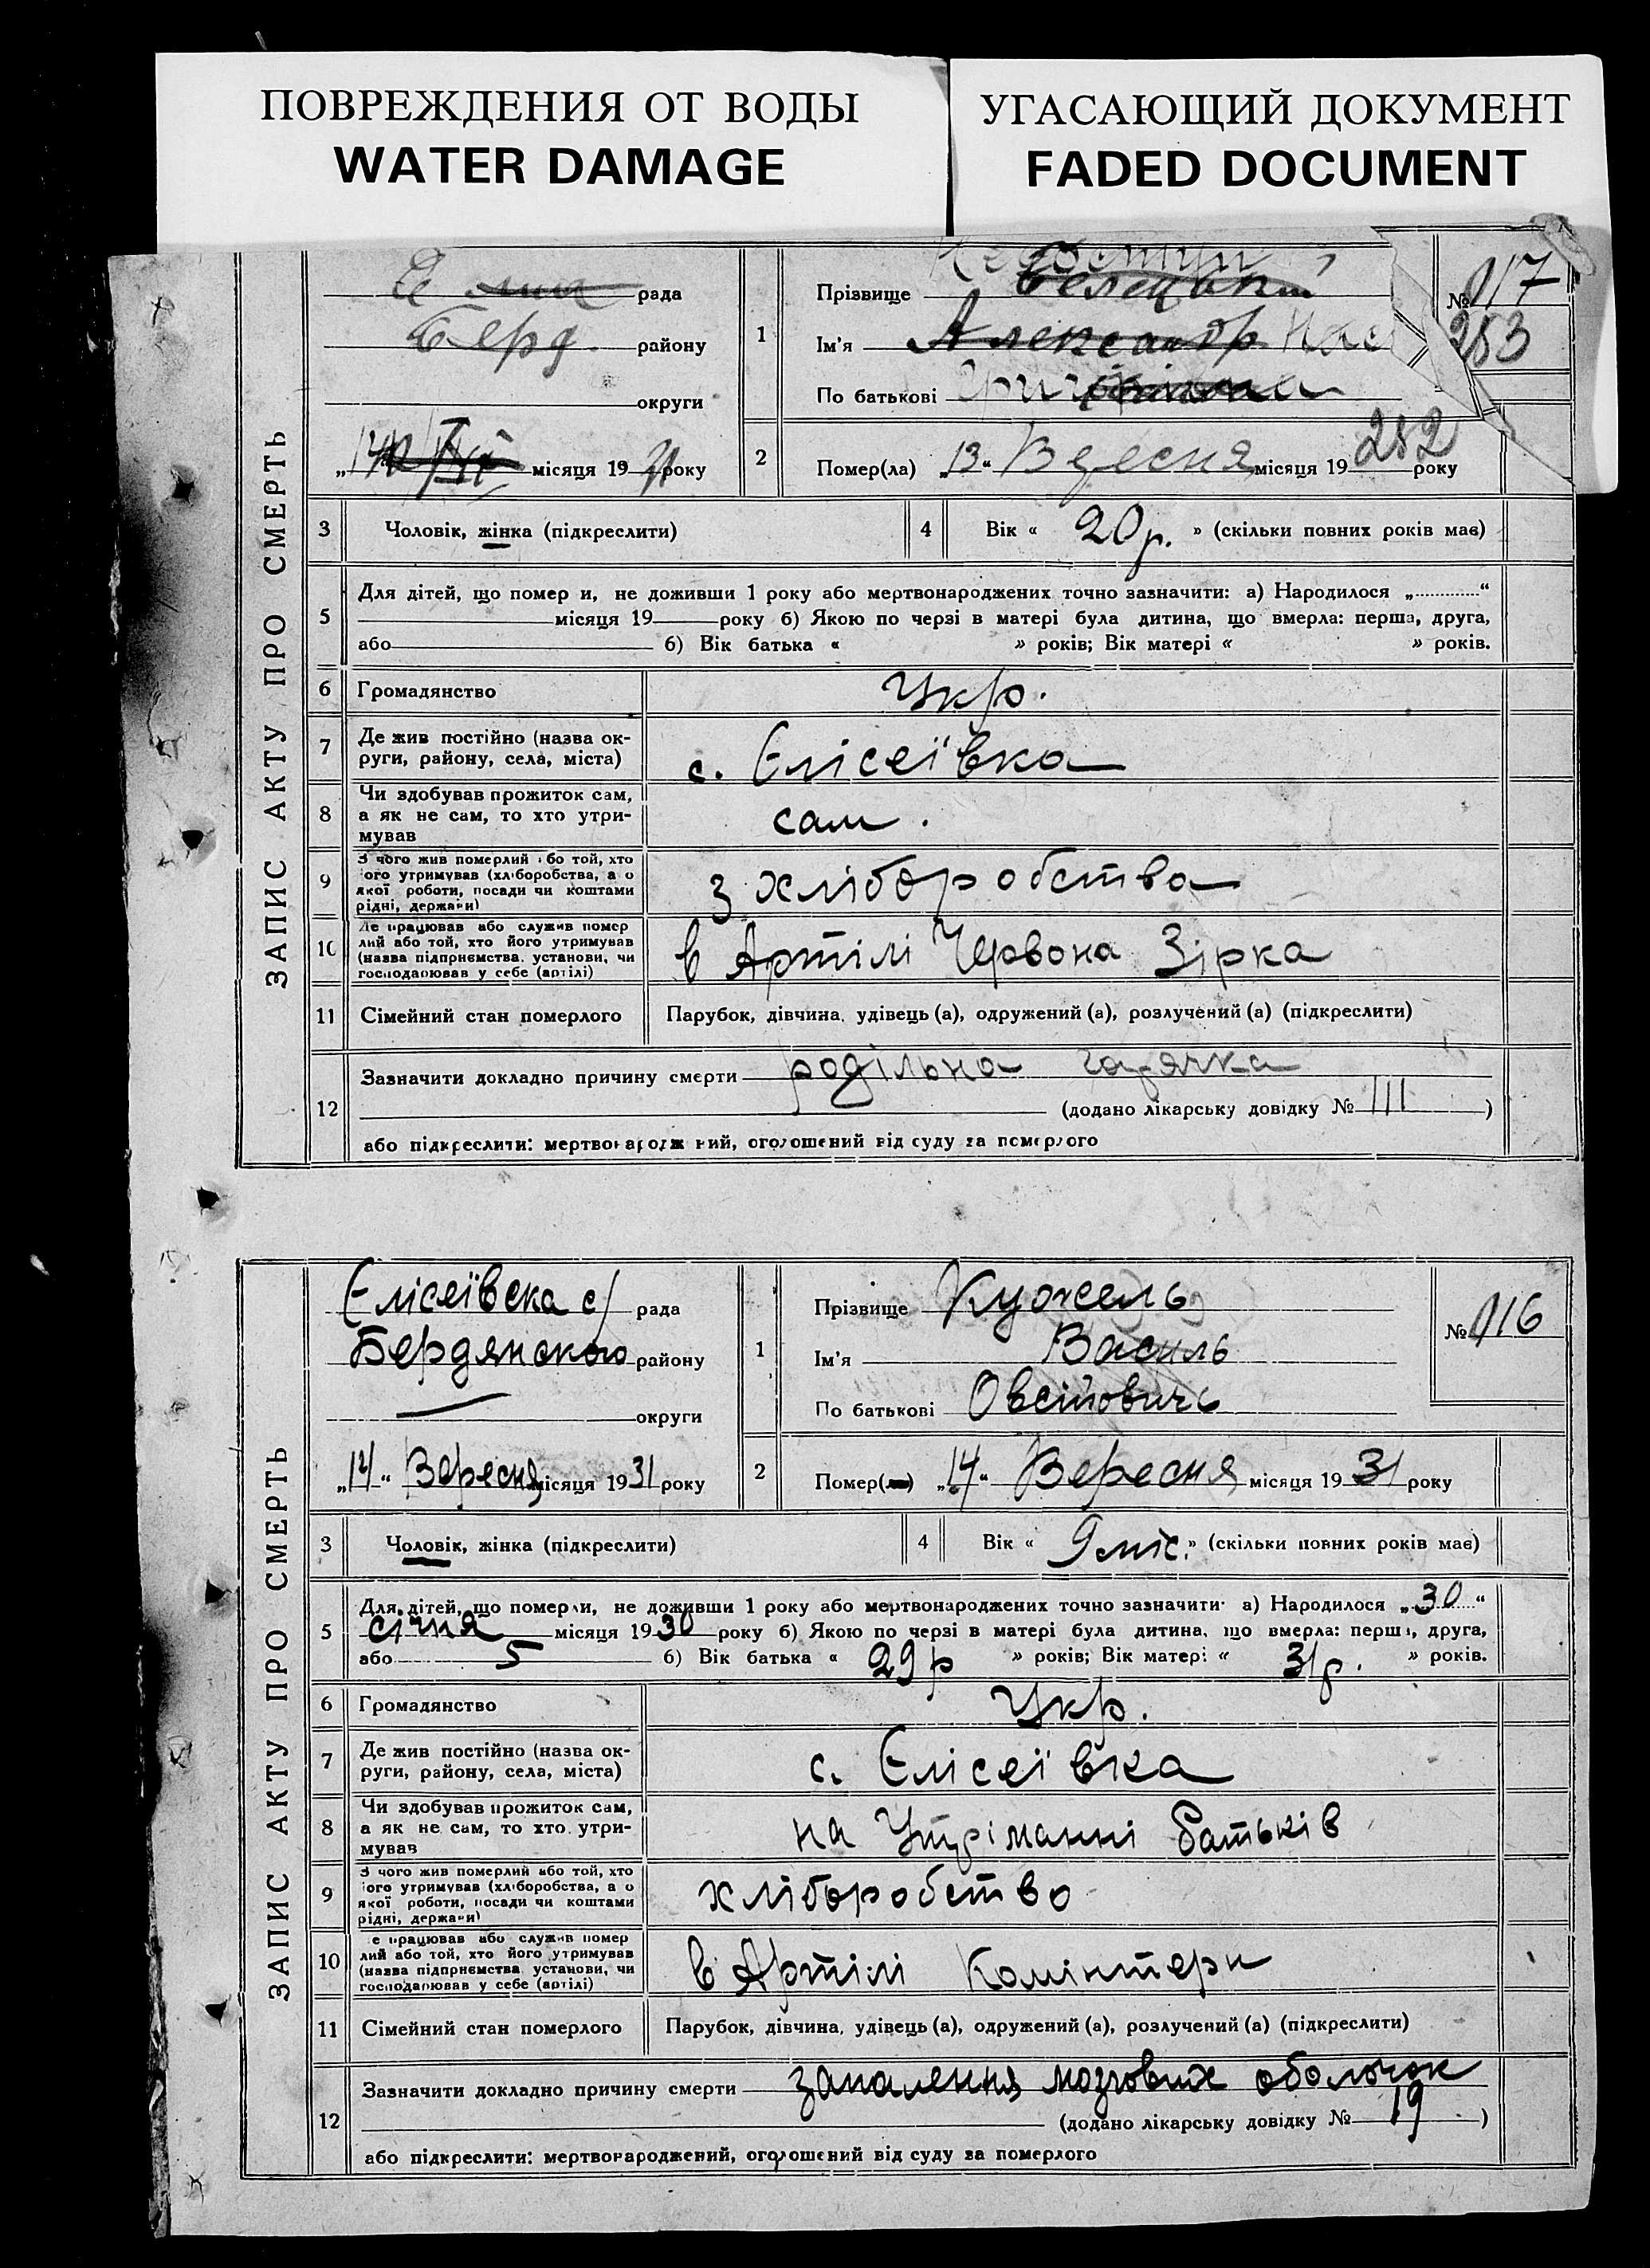 ПОВРЕЖДЕНИЯ ОТ ВОДЫ
WATER DAMAGE
УГАСАЮЩИЙ ДОКУМЕНТ
FADED DOCUMENT
ЗАПИС АКТУ ПРО СМЕРТЬ
рада
Берд. району
округи
місяця 19 31 року
1
Прізвище
Ім'я Александр
По батькові
№ 117
283
2
Помер(ла) „13“ Вересня місяця 19 року
282
3 Чоловік, жінка (підкреслити)
4 Вік « 20 р. » (скільки повних років має)
5 Для дітей, що помер и, не доживши 1 року або мертвонароджених точно зазначити: а) Народилося „ “
місяця 19 року б) Якою по черзі в матері була дитина, що вмерла: перша, друга,
або б) Вік батька « » років; Вік матері « » років.
6 Громадянство Укр.
7 Де жив постійно (назва ок-
руги, району, села, міста) с. Єлісеївка
8 Чи здобував прожиток сам,
а як не сам, то хто утри-
мував сам.
9 З чого жив померлий або той, хто
ого утримував (хліборобства, а о
якої роботи, посади чи коштами
рідні, держави) з хліборобства
10 Де працював або служив помер
лий або той, хто його утримував
(назва підприємства, установи, чи
господарював у себе (артілі) в Артілі Червона Зірка
11 Сімейний стан померлого Парубок, дівчина, удівець (а), одружений (а), розлучений (а) (підкреслити)
12 Зазначити докладно причину смерти родільна гарячка
(додано лікарську довідку № 111 )
або підкреслити: мертвонароджений, оголошений від суду за померлого
ЗАПИС АКТУ ПРО СМЕРТЬ
Єлісеївска с/ рада
Бердянского району
округи
„14“ Вересня місяця 19 31 року
1
Прізвище Кужель
Ім'я Василь
По батькові Овсійовичь
№ 116
2
Помер(ла) „14“ Вересня місяця 19 31 року
3 Чоловік, жінка (підкреслити)
4 Вік « 9 міс. » (скільки повних років має)
5 Для дітей, що померли, не доживши 1 року або мертвонароджених точно зазначити: а) Народилося „30“
січня місяця 19 30 року б) Якою по черзі в матері була дитина, що вмерла: перша, друга,
або 5 б) Вік батька « 29 р » років; Вік матері « 31 р. » років.
6 Громадянство Укр.
7 Де жив постійно (назва ок-
руги, району, села, міста) с. Єлісеївка
8 Чи здобував прожиток сам,
а як не сам, то хто утри-
мував на Утріманні батьків
9 З чого жив померлий або той, хто
ого утримував (хліборобства, а о
якої роботи, посади чи коштами
рідні, держави) хліборобство
10 е працював або служив помер
лий або той, хто його утримував
(назва підприємства, установи, чи
господарював у себе (артілі) в Артілі Комінтерн
11 Сімейний стан померлого Парубок, дівчина, удівець (а), одружений (а), розлучений (а) (підкреслити)
12 Зазначити докладно причину смерти запалення мозгових оболочок
(додано лікарську довідку № 19 )
або підкреслити: мертвонароджений, оголошений від суду за померлого